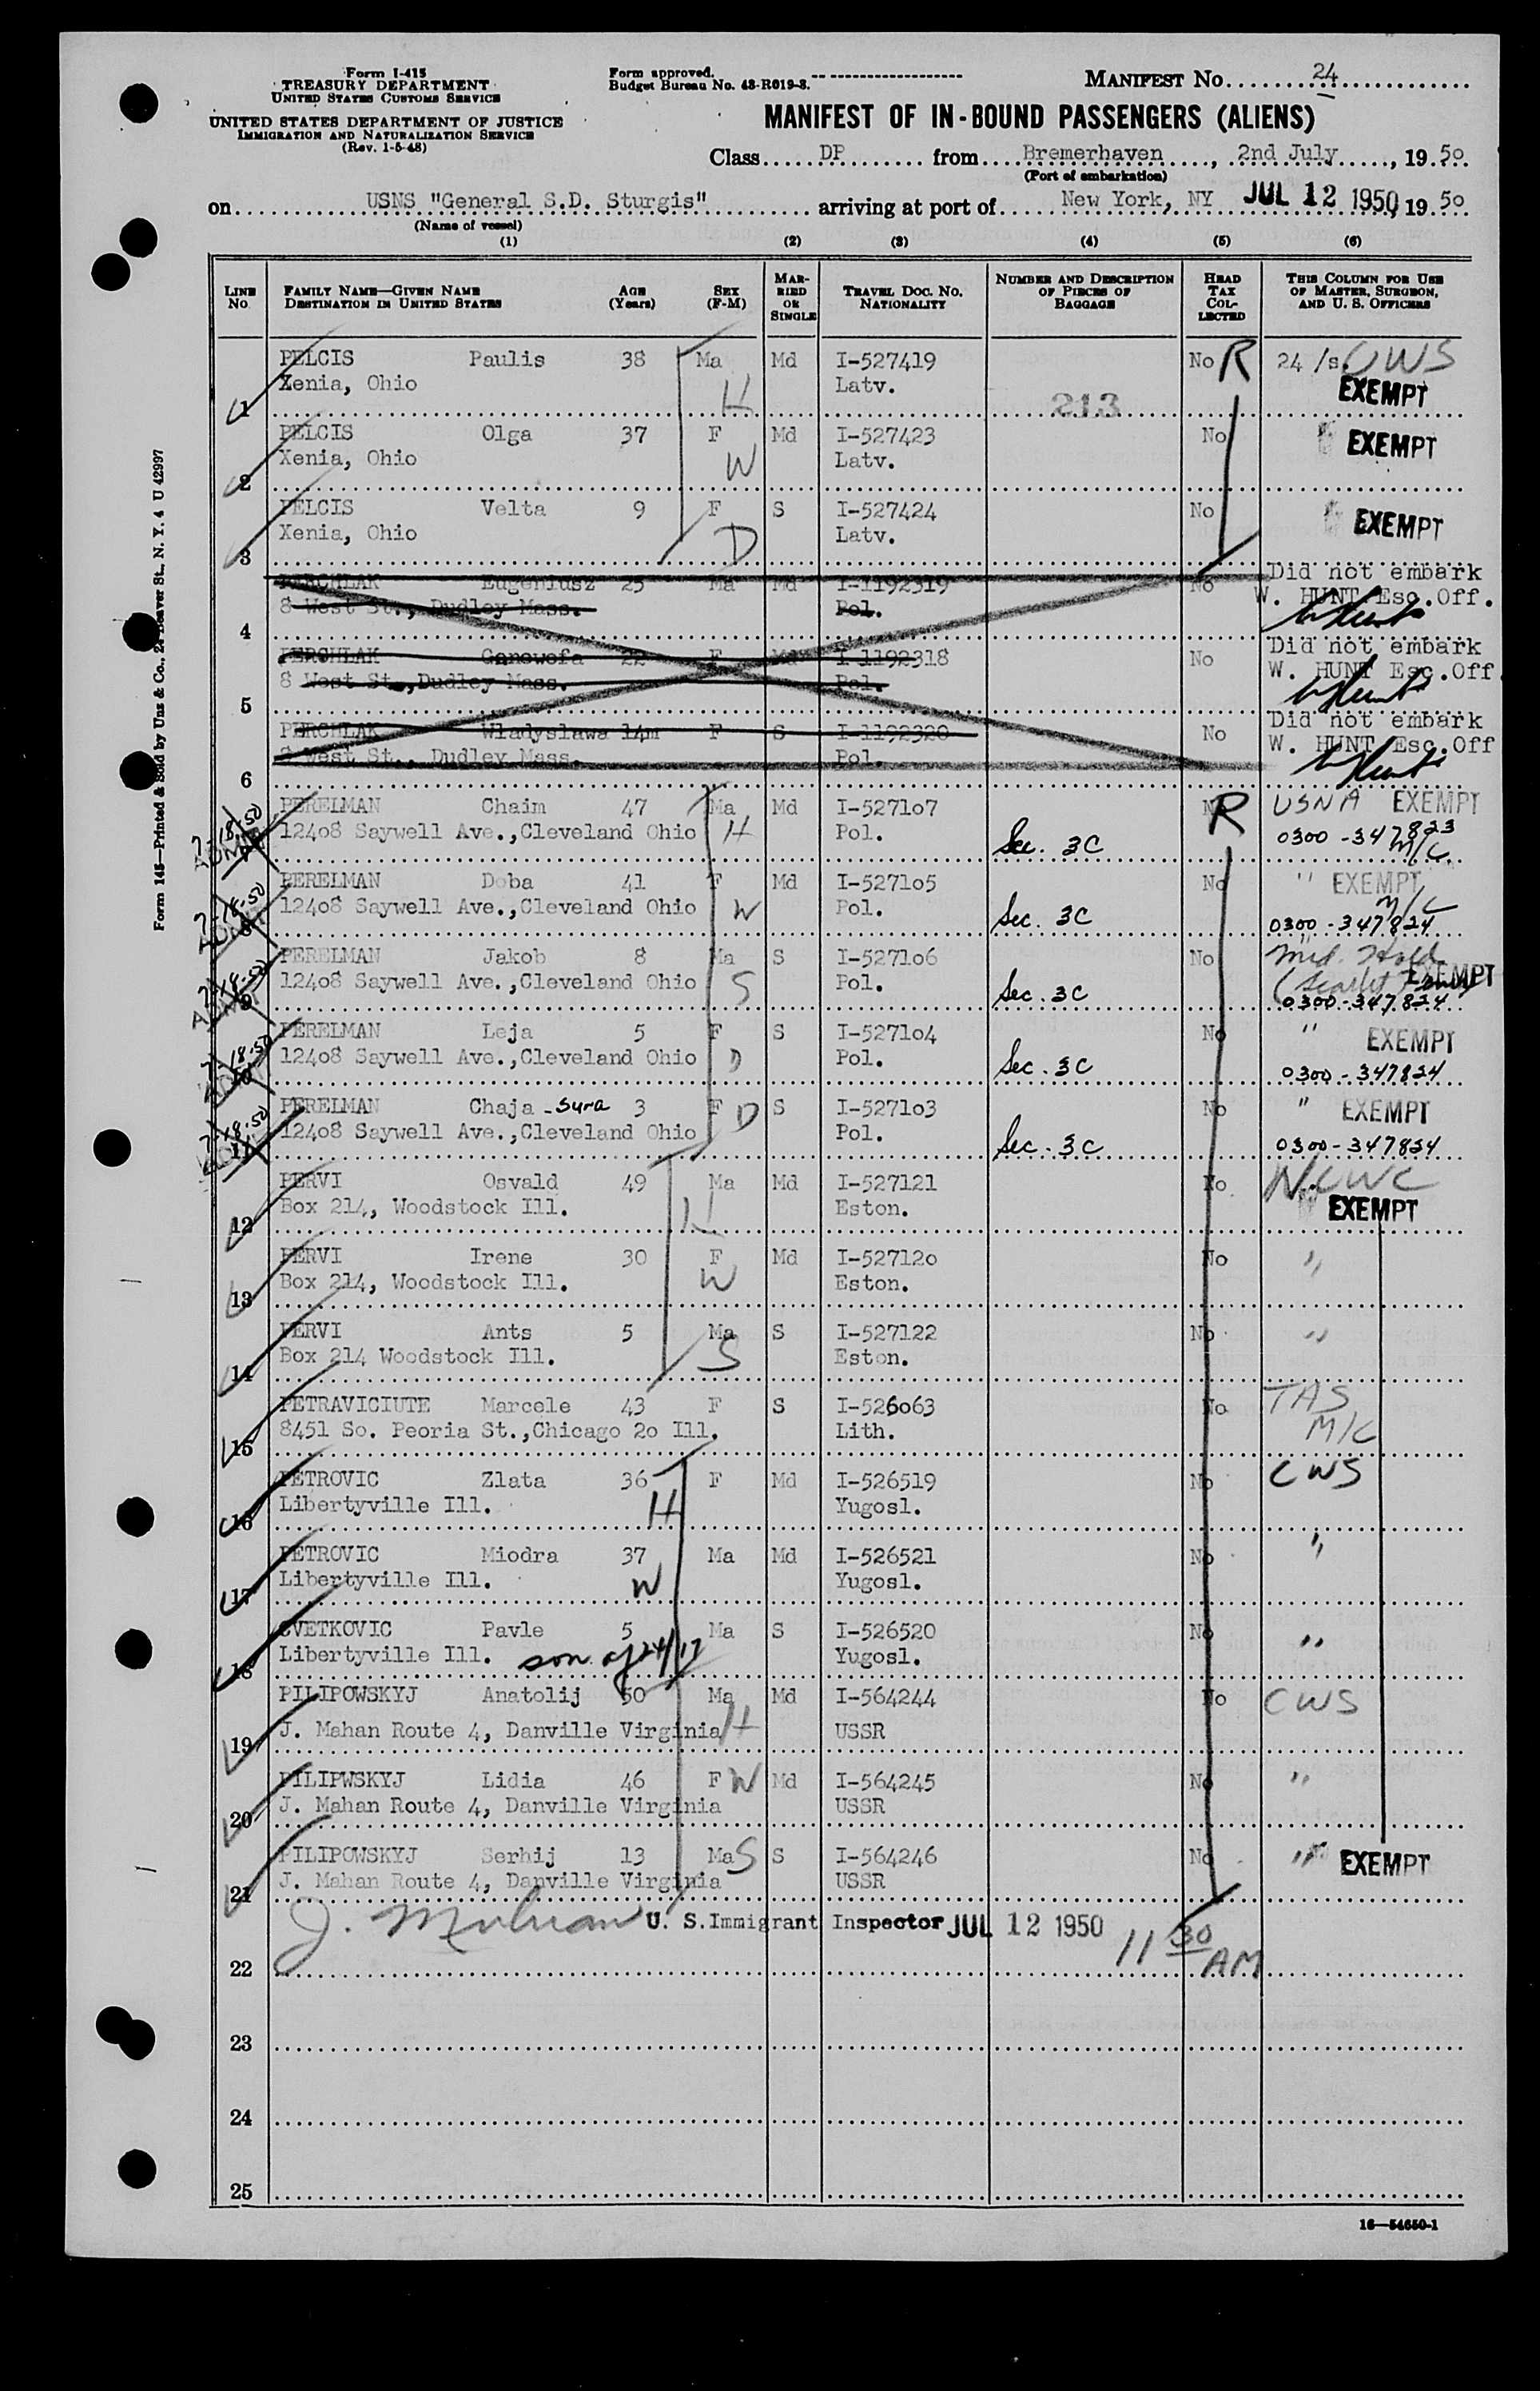 Form I-415
TREASURY DEPARTMENT
UNITED STATES CUSTOMS SERVICE
UNITED STATES DEPARTMENT OF JUSTICE
IMMIGRATION AND NATURALIZATION SERVICE
(Rev. 1-5-48)
Form approved.
Budget Bureau No. 43-R019-3.
MANIFEST NO. 24
MANIFEST OF IN-BOUND PASSENGERS (ALIENS)
Class DP from Bremerhaven, 2nd July, 19 50
(Port of embarkation)
on USNS "General S.D. Sturgis" arriving at port of New York, NY JUL 12 1950, 19 50
(Name of vessel)
(1) (2) (3) (4) (5) (6)
LINE NO. FAMILY NAME—GIVEN NAME DESTINATION IN UNITED STATES AGE (Years) SEX (F-M) MARRIED OR SINGLE TRAVEL DOC. NO. NATIONALITY NUMBER AND DESCRIPTION OF PIECES OF BAGGAGE HEAD TAX COLLECTED THIS COLUMN FOR USE OF MASTER, SURGEON, AND U. S. OFFICERS
PELCIS Paulis 38 Ma Md I-527419 No R 24/s UWS
1 Xenia, Ohio H Latv. 213 EXEMPT
PELCIS Olga 37 F Md I-527423 No " EXEMPT
2 Xenia, Ohio W Latv.
PELCIS Velta 9 F S I-527424 No " EXEMPT
3 Xenia, Ohio D Latv.
PERCHLAK Eugeniusz 25 Ma Md I-1192319 No Did not embark
4 8 West St., Dudley Mass. Pol. W. HUNT Esc.Off.
W Hunt
PERCHLAK Genowefa 22 F Md I-1192318 No Did not embark
5 8 West St., Dudley Mass. Pol. W. HUNT Esc.Off
W Hunt
PERCHLAK Wladyslawa 14m F S I-1192320 No Did not embark
6 8 West St., Dudley Mass. Pol. W. HUNT Esc.Off
W Hunt
7-18-50 ADMIT PERELMAN Chaim 47 Ma Md I-527107 No R USNA EXEMPT
12408 Saywell Ave.,Cleveland Ohio H Pol. Sec. 3C 0300-347823 M/C
7-18-50 ADMIT PERELMAN Doba 41 F Md I-527105 No " EXEMPT
12408 Saywell Ave.,Cleveland Ohio W Pol. Sec. 3C M/C 0300-347824
7-18-50 ADMIT PERELMAN Jakob 8 Ma S I-527106 No Med. Hold EXEMPT
9 12408 Saywell Ave.,Cleveland Ohio S Pol. Sec. 3C (Scarlet Fever) 0300-347824
7-18-50 ADMIT PERELMAN Leja 5 F S I-527104 No " EXEMPT
10 12408 Saywell Ave.,Cleveland Ohio D Pol. Sec. 3C 0300-347824
7-18-50 ADMIT PERELMAN Chaja-Sura 3 F D S I-527103 No " EXEMPT
11 12408 Saywell Ave.,Cleveland Ohio Pol. Sec. 3C 0300-347824
PERVI Osvald 49 Ma Md I-527121 No NCWC
12 Box 214, Woodstock Ill. H Eston. EXEMPT
PERVI Irene 30 F Md I-527120 No "
13 Box 214, Woodstock Ill. W Eston.
PERVI Ants 5 Ma S I-527122 No "
14 Box 214 Woodstock Ill. S Eston.
PETRAVICIUTE Marcele 43 F S I-526063 No TAS
15 8451 So. Peoria St.,Chicago 20 Ill. Lith. M/C
PETROVIC Zlata 36 F Md I-526519 No CWS
16 Libertyville Ill. H Yugosl.
PETROVIC Miodra 37 Ma Md I-526521 No "
17 Libertyville Ill. W Yugosl.
CVETKOVIC Pavle 5 Ma S I-526520 No "
18 Libertyville Ill. son of 24/17 Yugosl.
PILIPOWSKYJ Anatolij 50 Ma Md I-564244 No CWS
19 J. Mahan Route 4, Danville Virginia H USSR
PILIPWSKYJ Lidia 46 F W Md I-564245 No "
20 J. Mahan Route 4, Danville Virginia USSR
PILIPOWSKYJ Serhij 13 Ma S S I-564246 No " EXEMPT
21 J. Mahan Route 4, Danville Virginia USSR
U. S. Immigrant Inspector JUL 12 1950 11 30 AM
22
23
24
25
16—54650-1
Form 145—Printed & Sold by Unz & Co., 24 Beaver St., N. Y. 4 U 42997